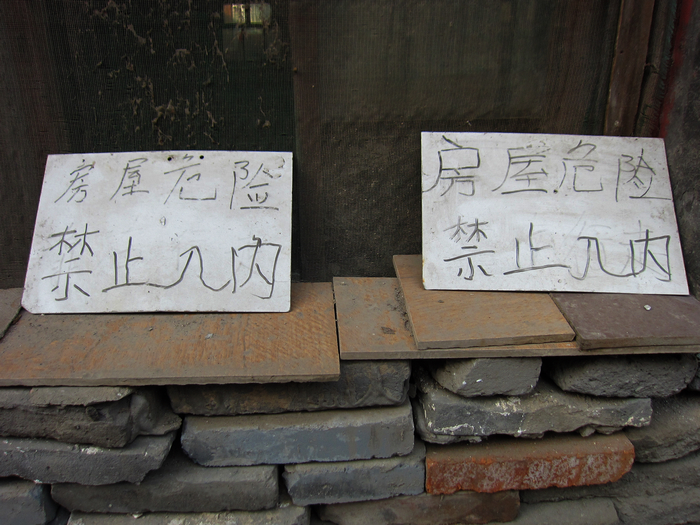 房屋危险
禁止入内
房屋危险
禁止入内